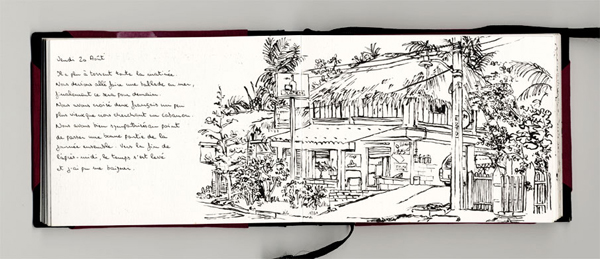 Jeudi 20 Août
Il a plu à torrent toute la matinée.
Nous devions allé faire une ballade en mer,
finalement ce sera pour demain.
Nous avons croisé deux français un peu
plus vieux que nous cherchant un cabanon.
Nous avons bien sympathisé au point
de passer une bonne partie de la
journée ensemble. Vers la fin de
l'après-midi, le temps s'est levé
et j'ai pu me baigner.